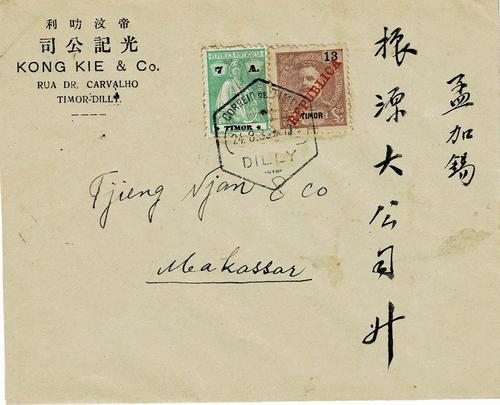 帝汶叻利
光記公司
KONG KIE & Co.
RUA DR. CARVALHO
TIMOR-DILLY.
REPUBLICA PORTUGUESA
7 A.
TIMOR
13
REPUBLICA
TIMOR
CORREIO DE
DILLY
Tjieng Njan & Co
Makassar
孟加錫
振源大公司升